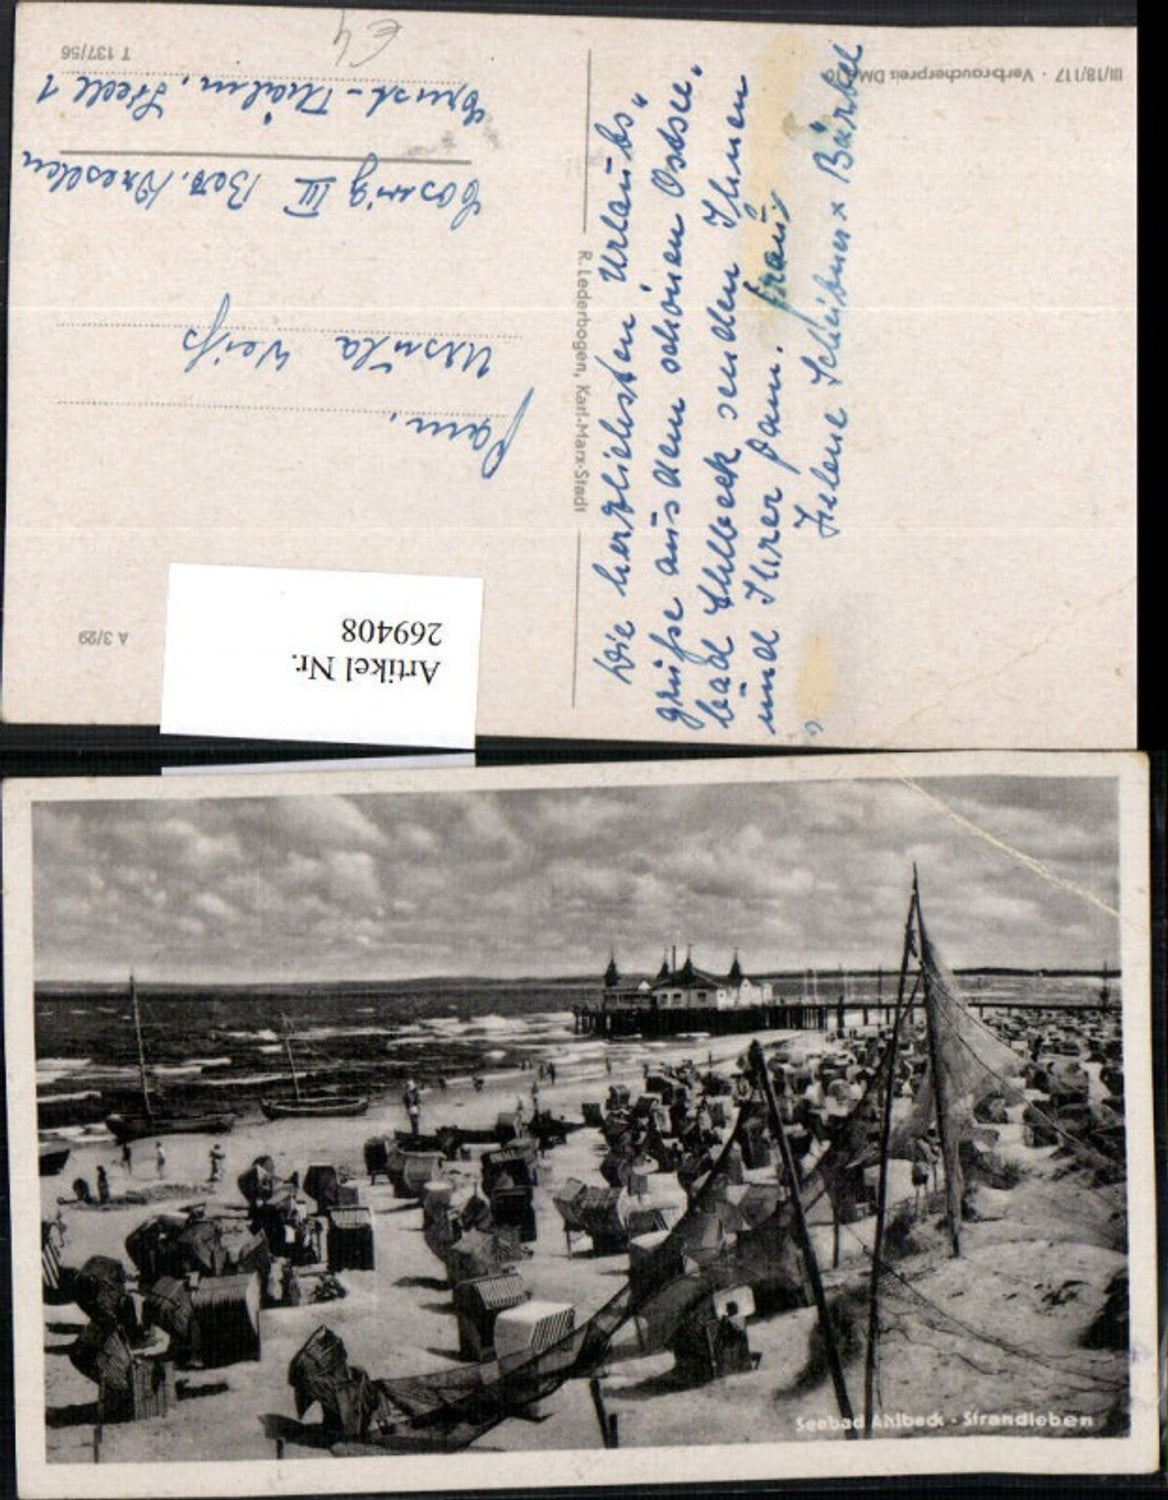 Die herzlichsten Urlaubs"
grüße aus dem schönen Ostsee"
bad Ahlbeck senden Ihnen
und Ihrer Fam.
Helene Scheibner x Bärbel
R. Lederbogen, Karl-Marx-Stadt
Fam.
Ursula Weiß
Coswig III Bez. Dresden
Ernst-Thälm. Siedl 1
III/18/117 · Verbraucherpreis DM
T 137/56
A 3/29
€4
Artikel Nr.
269408
Seebad Ahlbeck - Strandleben